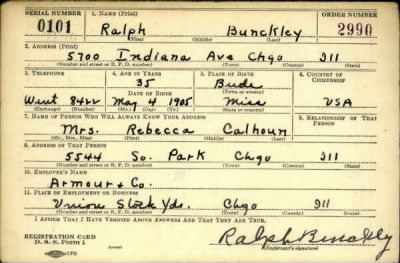 SERIAL NUMBER 1. NAME (Print) ORDER NUMBER
0101 Ralph Bunckley 2990
(First) (Middle) (Last)
2. ADDRESS (Print)
5700 Indiana Ave Chgo Ill
(Number and street or R. F. D. number) (Town) (County) (State)
3. TELEPHONE 4. AGE IN YEARS 5. PLACE OF BIRTH 6. COUNTRY OF CITIZENSHIP
35 Bude
DATE OF BIRTH (Town or county)
Went 8422 May 4 1905 Miss USA
(Exchange) (Number) (Mo.) (Day) (Yr.) (State or country)
7. NAME OF PERSON WHO WILL ALWAYS KNOW YOUR ADDRESS 8. RELATIONSHIP OF THAT PERSON
Mrs. Rebecca Calhoun
(Mr., Mrs., Miss) (First) (Middle) (Last)
9. ADDRESS OF THAT PERSON
5544 So. Park Chgo Ill
(Number and street or R. F. D. number) (Town) (County) (State)
10. EMPLOYER'S NAME
Armour & Co.
11. PLACE OF EMPLOYMENT OR BUSINESS
Union Stock Yds. Chgo Ill
(Number and street or R. F. D. number) (Town) (County) (State)
I AFFIRM THAT I HAVE VERIFIED ABOVE ANSWERS AND THAT THEY ARE TRUE.
REGISTRATION CARD
D. S. S. Form 1
Ralph Binckley
(Registrant's signature)